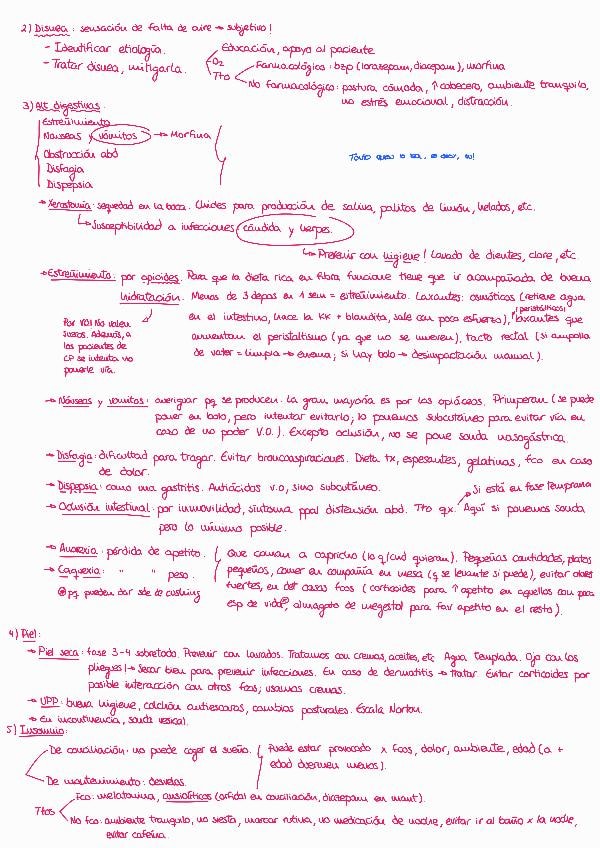 2) Disnea: sensación de falta de aire → subjetivo!
- Identificar etiología.
- Tratar disnea, mitigarla.
Educación, apoyo al paciente
O2
Tto
Farmacológico: bzp (lorazepam, diacepam), morfina
No farmacológico: postura cómoda, ↑ cabecero, ambiente tranquilo,
no estrés emocional, distracción.
3) Alt digestivas:
Estreñimiento
Náuseas y vómitos → Morfina
Obstrucción abd
Disfagia
Dispepsia
→ Xerostomía: sequedad en la boca. Chicles para producción de saliva, palitos de limón, helados, etc.
↳ Susceptibilidad a infecciones cándida y herpes.
↳ Prevenir con higiene! Lavado de dientes, clore, etc
→ Estreñimiento: por opioides. Para que la dieta rica en fibra funcione tiene que ir acompañada de buena
hidratación. Menos de 3 depos en 1 sem = estreñimiento. Laxantes: osmóticos (retiene agua
en el intestino, hace la KK + blandita, sale con poco esfuerzo), (peristálticos) laxantes que
aumentan el peristaltismo (ya que no se mueven), tacto rectal (si ampolla
de vater = limpia → enema; si hay bolo → desimpactación manual).
Por VO! No valen
sueros. Además, a
los pacientes de
CP se intenta no
ponerle vía.
→ Náuseas y vómitos: averiguar pq se producen. La gran mayoría es por los opiáceos. Primperan (se puede
poner en bolo, pero intentar evitarlo; lo ponemos subcutáneo para evitar vía en
caso de no poder V.O.). Excepto oclusión, no se pone sonda nasogástrica.
→ Disfagia: dificultad para tragar. Evitar broncoaspiraciones. Dieta tx, espesantes, gelatinas, fco en caso
de dolor.
→ Dispepsia: como una gastritis. Antiácidos v.o, sino subcutáneo.
Si está en fase temprana
→ Oclusión intestinal: por inmovilidad, síntoma ppal distensión abd. Tto qx. Aquí si ponemos sonda
pero lo mínimo posible.
→ Anorexia: pérdida de apetito.
→ Caquexia: " " peso.
pq pueden dar sde de cushing
Que coman a capricho (lo q/cnd quieran). Pequeñas cantidades, platos
pequeños, comer en compañía en mesa (q se levante si puede), evitar olores
fuertes, en det casos fcos (corticoides para ↑ apetito en aquellos con poca
esp de vida, almagato de megestol para fav apetito en el resto).
4) Piel:
→ Piel seca: fase 3-4 sobretodo. Prevenir con lavados. Tratamos con cremas, aceites, etc Agua templada. Ojo con los
pliegues! → Secar bien para prevenir infecciones. En caso de dermatitis → tratar. Evitar corticoides por
posible interacción con otros fcos; usamos cremas.
→ UPP: buena higiene, colchón antiescaras, cambios posturales. Escala Norton.
→ En incontinencia, sonda vesical.
5) Insomnio:
De conciliación: no puede coger el sueño.
De mantenimiento: desvelos.
Puede estar provocado x fcos, dolor, ambiente, edad (a +
edad duermen menos).
Ttos
Fco: melatonina, ansiolíticos (orfidal en conciliación, diazepam en mant).
No fco: ambiente tranquilo, no siesta, marcar rutina, no medicación de noche, evitar ir al baño x la noche,
evitar cafeína.